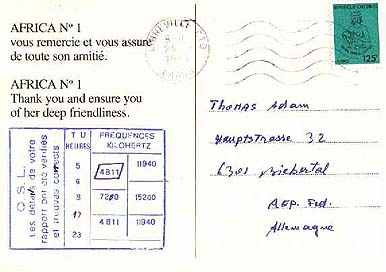 AFRICA Nº 1
vous remercie et vous assure
de toute son amitié.
AFRICA Nº 1
Thank you and ensure you
of her deep friendliness.
LIBREVILLE
GABON
125F
Thomas Adam
Hauptstrasse 32
6301 Biebertal
Rep. Fed.
Allemagne
Q.S.L.
Les détails de votre
rapport ont été vérifiés
et trouvés corrects
T U
HEURES
FREQUENCES
KILOHERTZ
5
6
4811
11940
8
7200
15200
17
23
4811
11940